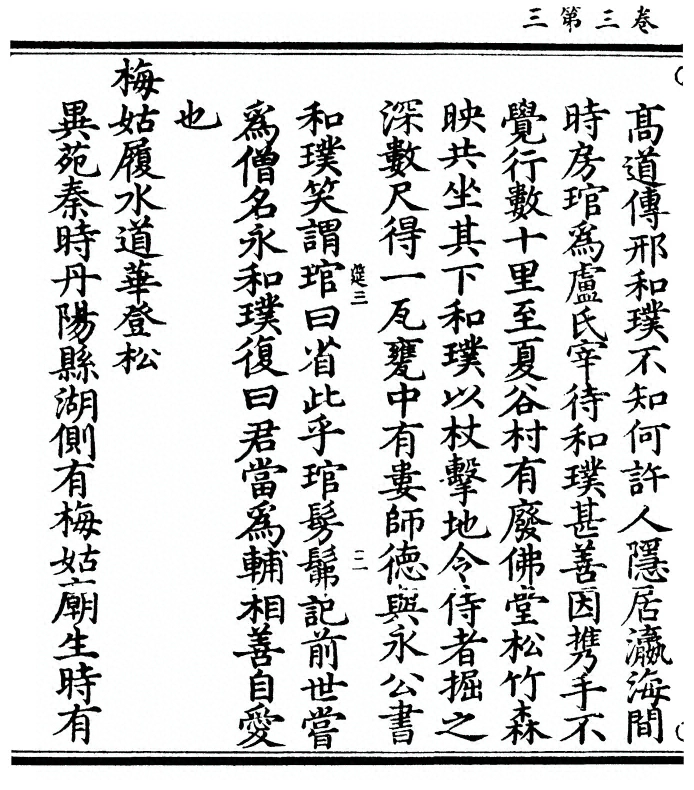 三第三卷
高道傳邢和璞不知何許人隱居瀛海間
時房琯爲盧氏宰待和璞甚善因携手不
覺行數十里至夏谷村有廢佛堂松竹森
映共坐其下和璞以杖擊地令侍者掘之
深數尺得一瓦甕中有婁師德與永公書
筵三
二
和璞笑謂琯曰省此乎琯髣髴記前世嘗
爲僧名永和璞復曰君當爲輔相善自愛
也
梅姑履水道華登松
異苑秦時丹陽縣湖側有梅姑廟生時有